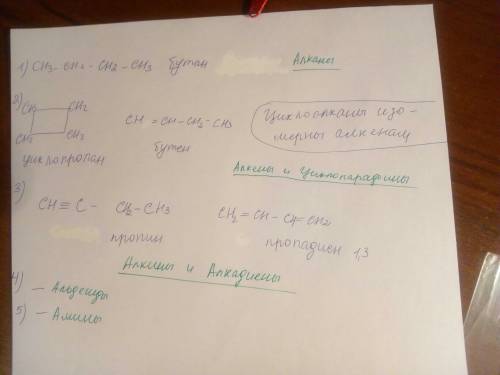 1) CH3 - CH2 - CH2 - CH3 бутан Алканы
2)
CH2 CH2
CH2 CH2
циклопропан
CH = CH - CH2 - CH3
бутен
Циклоалканы изо-
мерны алкенам
Алкены и Циклопарафины
3)
CH ≡ C - CH2 - CH3
пропин
CH2 = CH - CH = CH2
пропадиен 1,3
Алкины и Алкадиены
4) - Альдегиды
5) - Амины